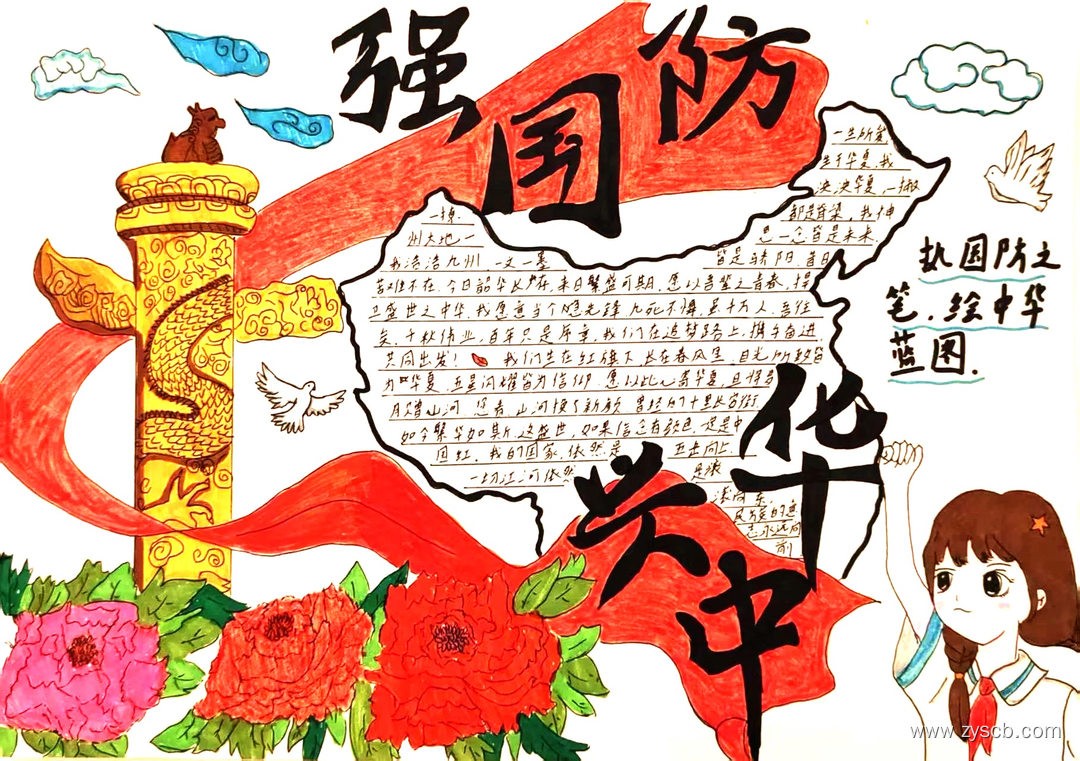 强国防
兴中华
一生所爱
生于华夏,我
泱泱华夏,一撇
都是脊梁,我伸
思一念皆是未来.
州大地一
我浩浩九州 一文一墨
皆是骄阳,昔日
不在,今日韶华长存,来日繁盛可期,愿以吾辈之青春,捍
卫盛世之中华,我愿意当个 先锋 九死不悔,虽千万人,吾往
矣,千秋伟业,百年只是序章,我们在追梦路上,携手奋进
共同出发! 我们生在红旗下,长在春风里,目光所致皆
为 华夏,五星闪耀皆为信仰.愿以此心寄华夏,且将岁
月赠山河 山河换了新颜 曾经的十里长街
如今繁华如斯,这盛世,如果信念有颜色,定是中
国红,我的国家,依然是 五岳向上
一切江河依然 是滚
滚向东,
民族的意
志永远向
前
执国防之
笔.绘中华
蓝图.
www.zyscb.com